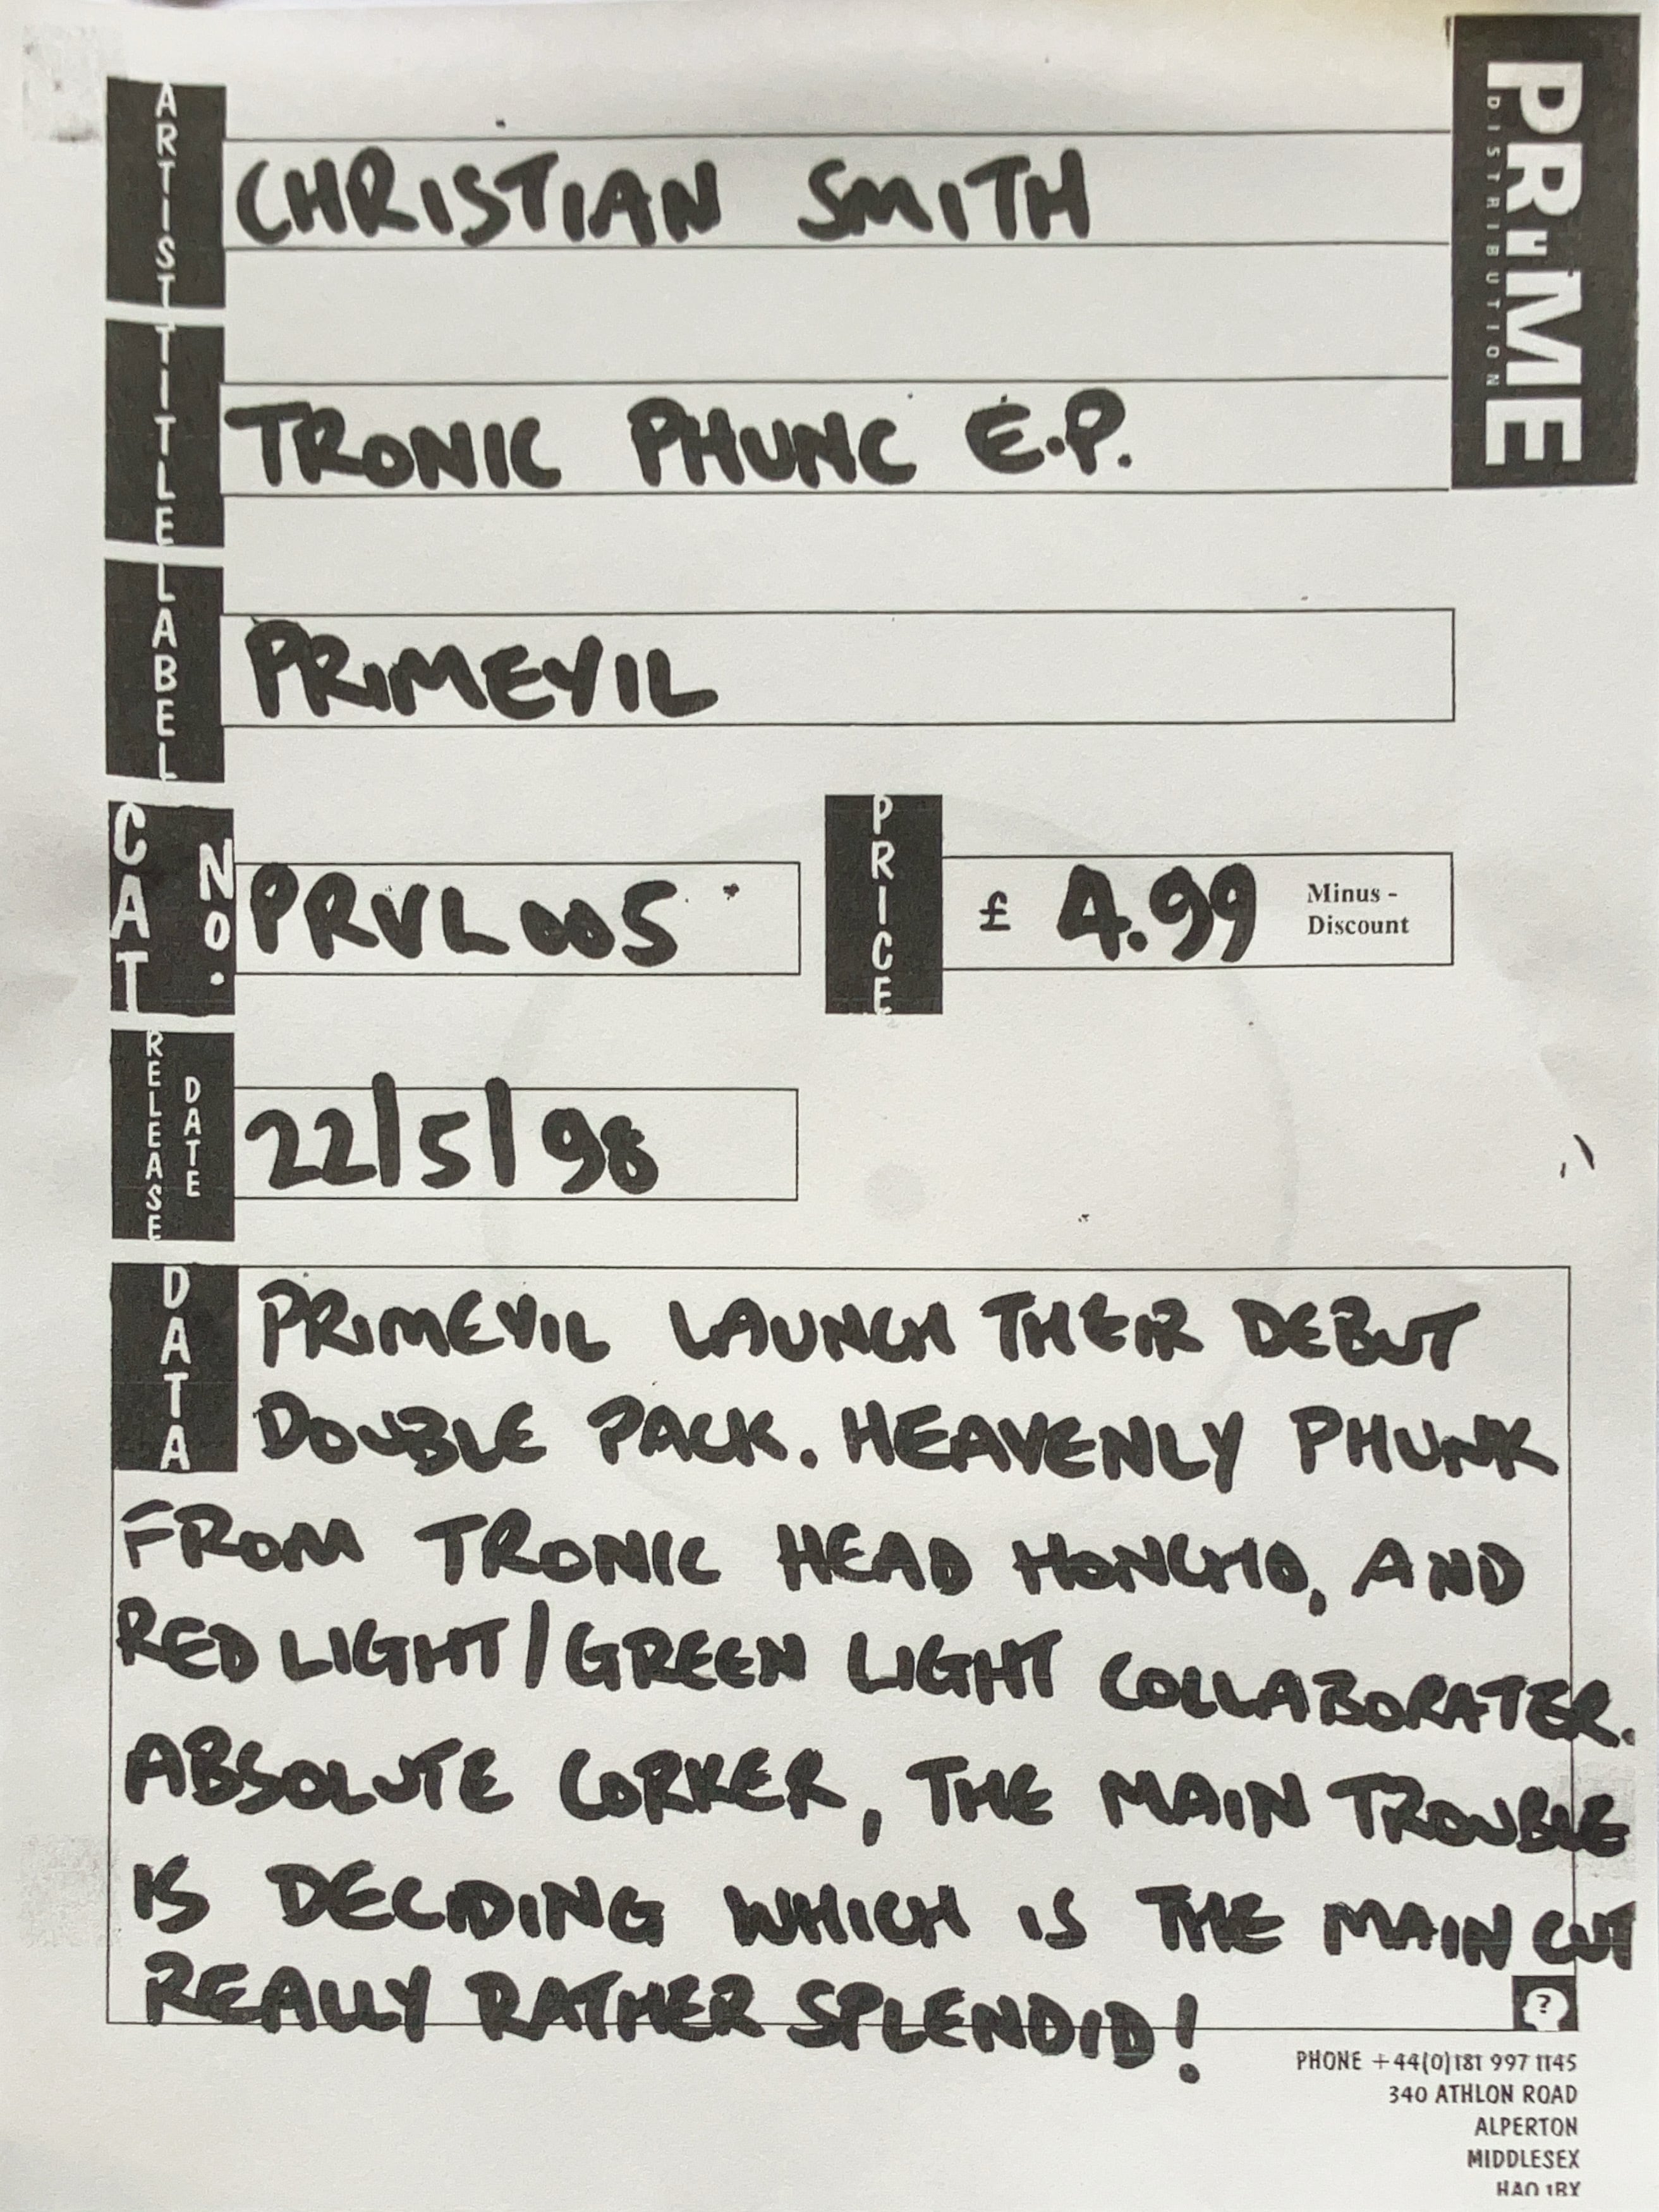 PRIME
DISTRIBUTION
ARTIST
CHRISTIAN SMITH
TITLE
TRONIC PHUNC E.P.
LABEL
PRIMEVIL
CAT NO.
PRVL005
PRICE
£ 4.99 Minus -
Discount
RELEASE DATE
22/5/98
DATA
PRIMEVIL LAUNCH THEIR DEBUT
DOUBLE PACK. HEAVENLY PHUNK
FROM TRONIC HEAD HONCHO, AND
RED LIGHT/GREEN LIGHT COLLABORATER.
ABSOLUTE CORKER, THE MAIN TROUBLE
IS DECIDING WHICH IS THE MAIN CUT
REALLY RATHER SPLENDID!
?
PHONE +44(0)181 997 1145
340 ATHLON ROAD
ALPERTON
MIDDLESEX
HA0 1BX